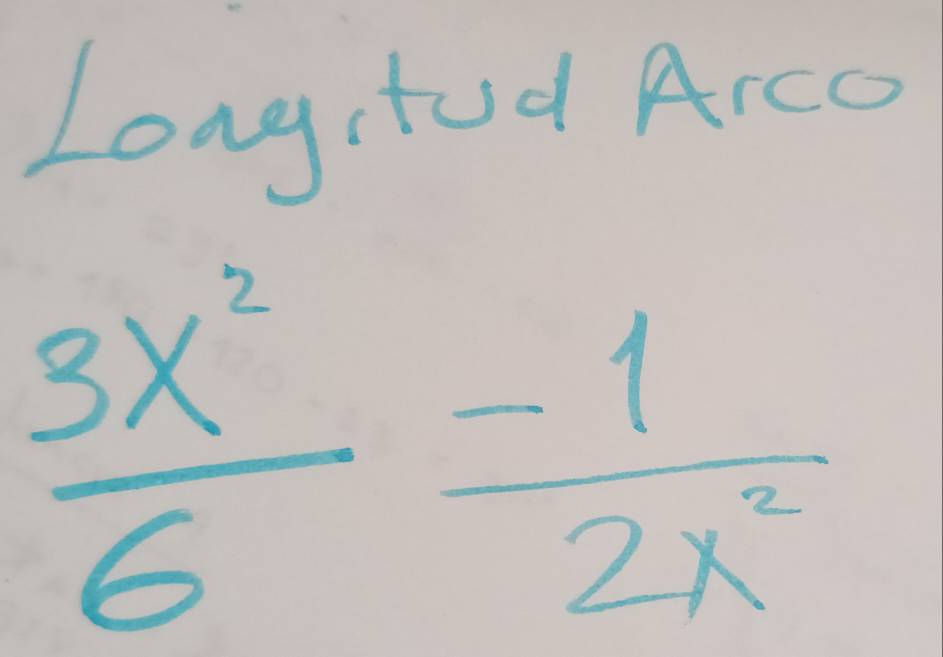 Longitud Arco
3x² / 6 -1 / 2x²